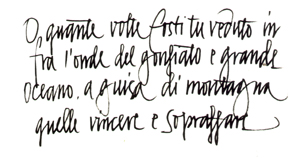 O, quante volte fosti tu veduto in
fra l'onde del gonfiato e grande
Oceano, a guisa di montagna
quelle vincere e sopraffare